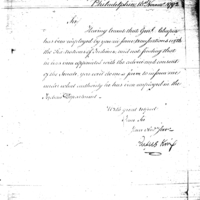 Philadelphia, 1792
Sir,
Having learnt that Genl. Chapin
has been employed by you in some transactions with
the Six Nations of Indians, and not finding that
he has been appointed with the advice and consent
of the Senate, you will deem it fair to inform me
under what authority he has been employed in the
Indian Department.
With great respect
I am Sir
Your